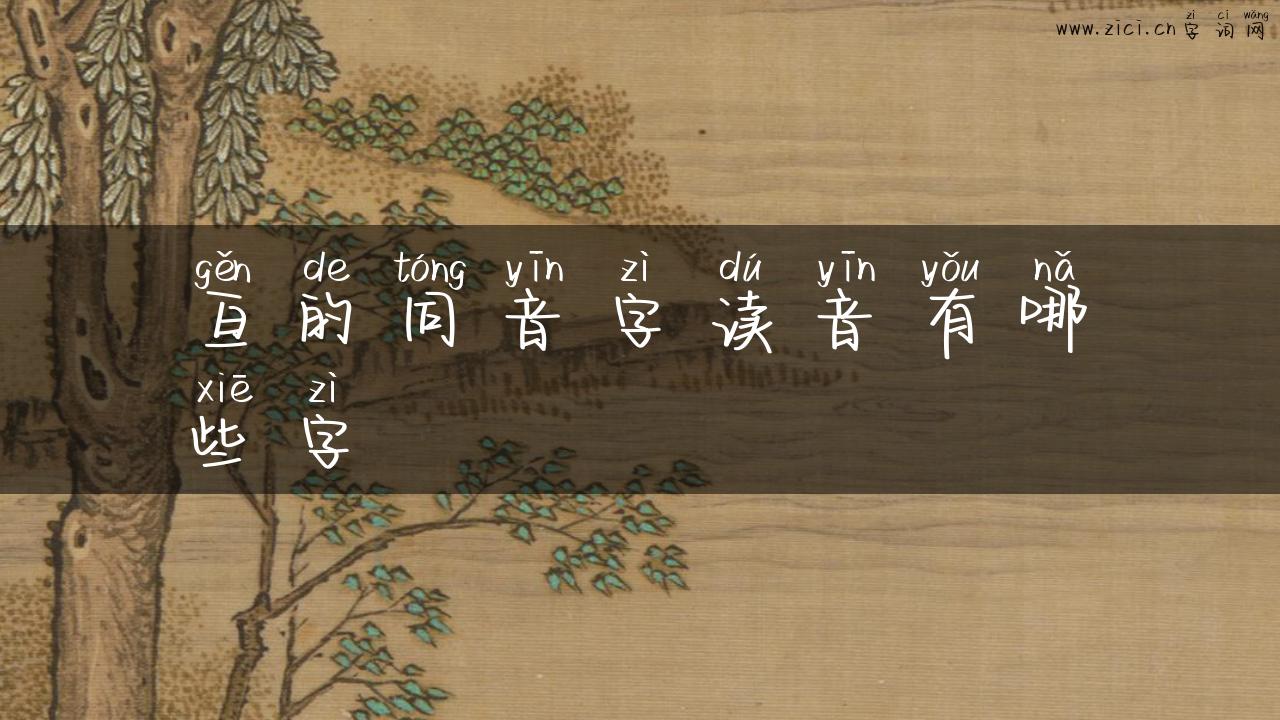 zì cí wǎng
www.zici.cn 字词网
gěn de tóng yīn zì dú yīn yǒu nǎ
亘的同音字读音有哪
xiē zì
些字